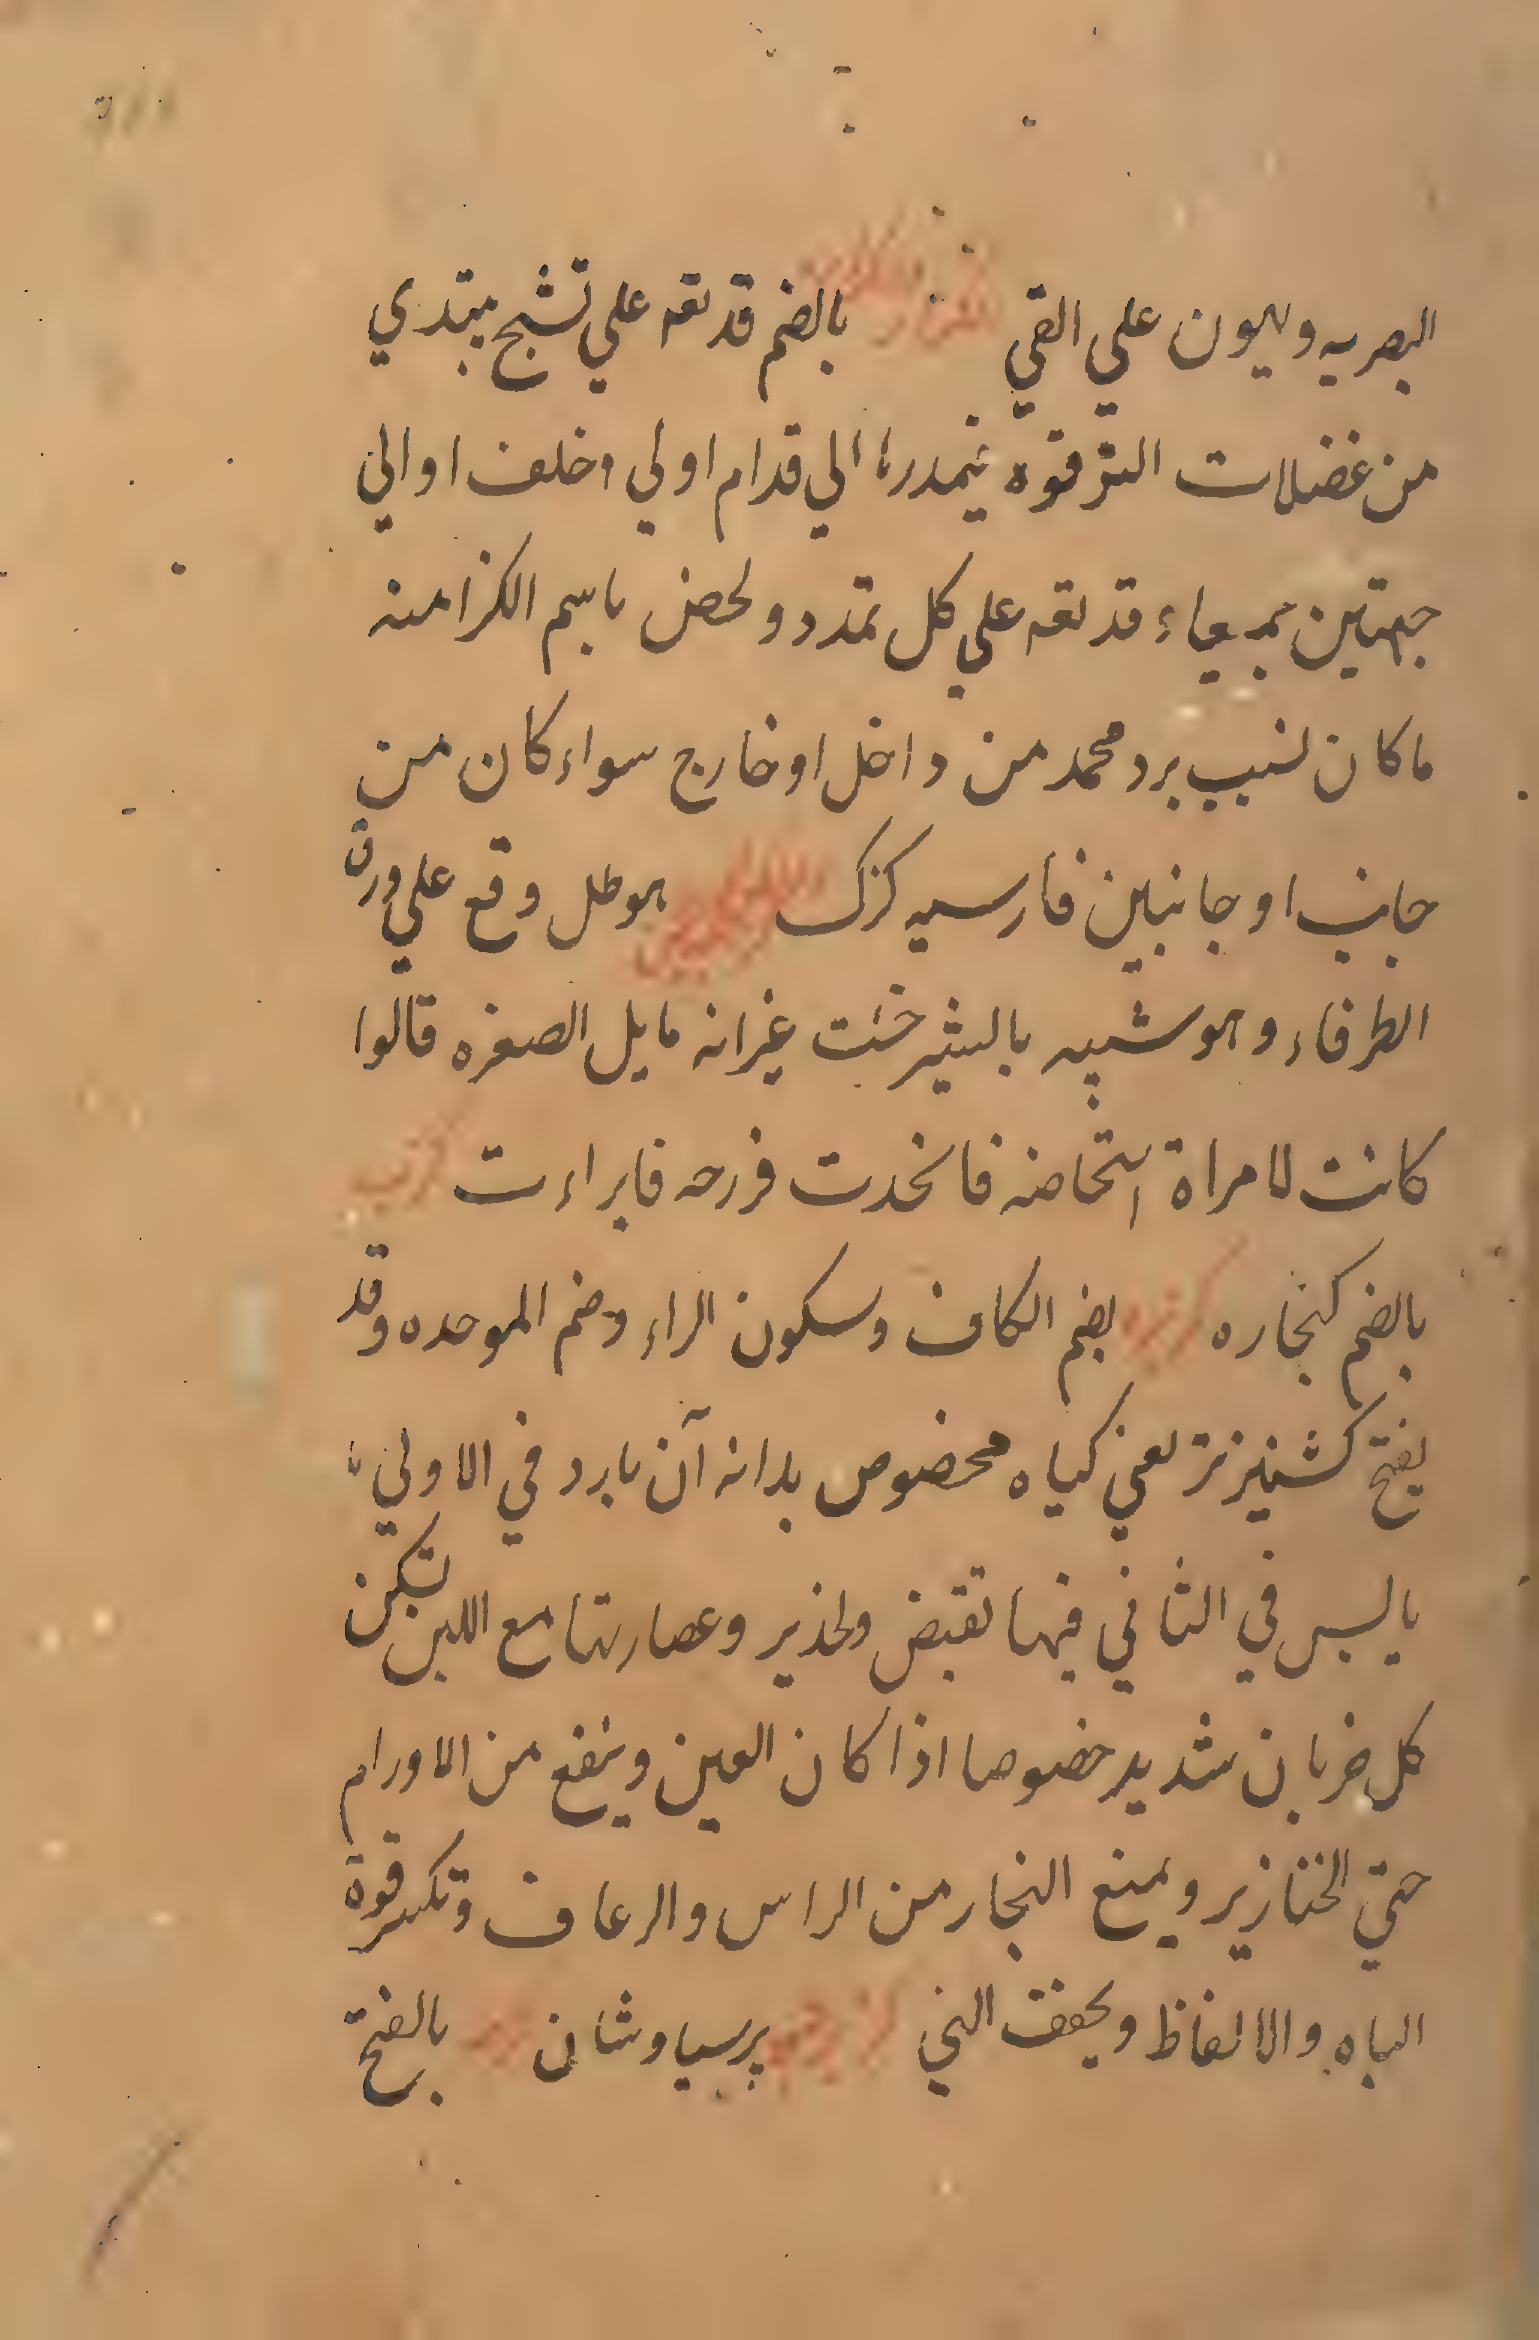 البصريه ويهون علي القي بالضم قد يقع علي تشنج مبتدي
من عضلات الترقوه فيمددها الي قدام اولي وخلف او الي
جهتين جميعاء قد يقع علي كل تمدد ولخص باسم الكزا منه
ما كان لسبب برد محمد من داخل او خارج سواء كان من
جانب او جانبين فارسيه كزك هو طل وقع علي ورق
الطرفاء وهو شبيه بالشير خشت غير انه مايل الصفره قالوا
كانت لامراة استحاضه فاتخدت فرزجه فابراءت كرب
بالضم كنجاره كزبره بضم الكاف وسكون الراء وضم الموحده وقد
يفتح كشنيز تر يعني كياه مخصوص بدانه آن بارد في الاولي
يابس في الثاني فيها تقبض وتخذير وعصارتها مع اللبن تسكن
كل ضربان شديد خصوصا اذا كان العين وينفع من الاورام
حتي الخنازير ويمنع البخار من الراس والرعاف وتكسر قوة
الباه والالفاظ ويجفف المني پرسياوشان بالفتح